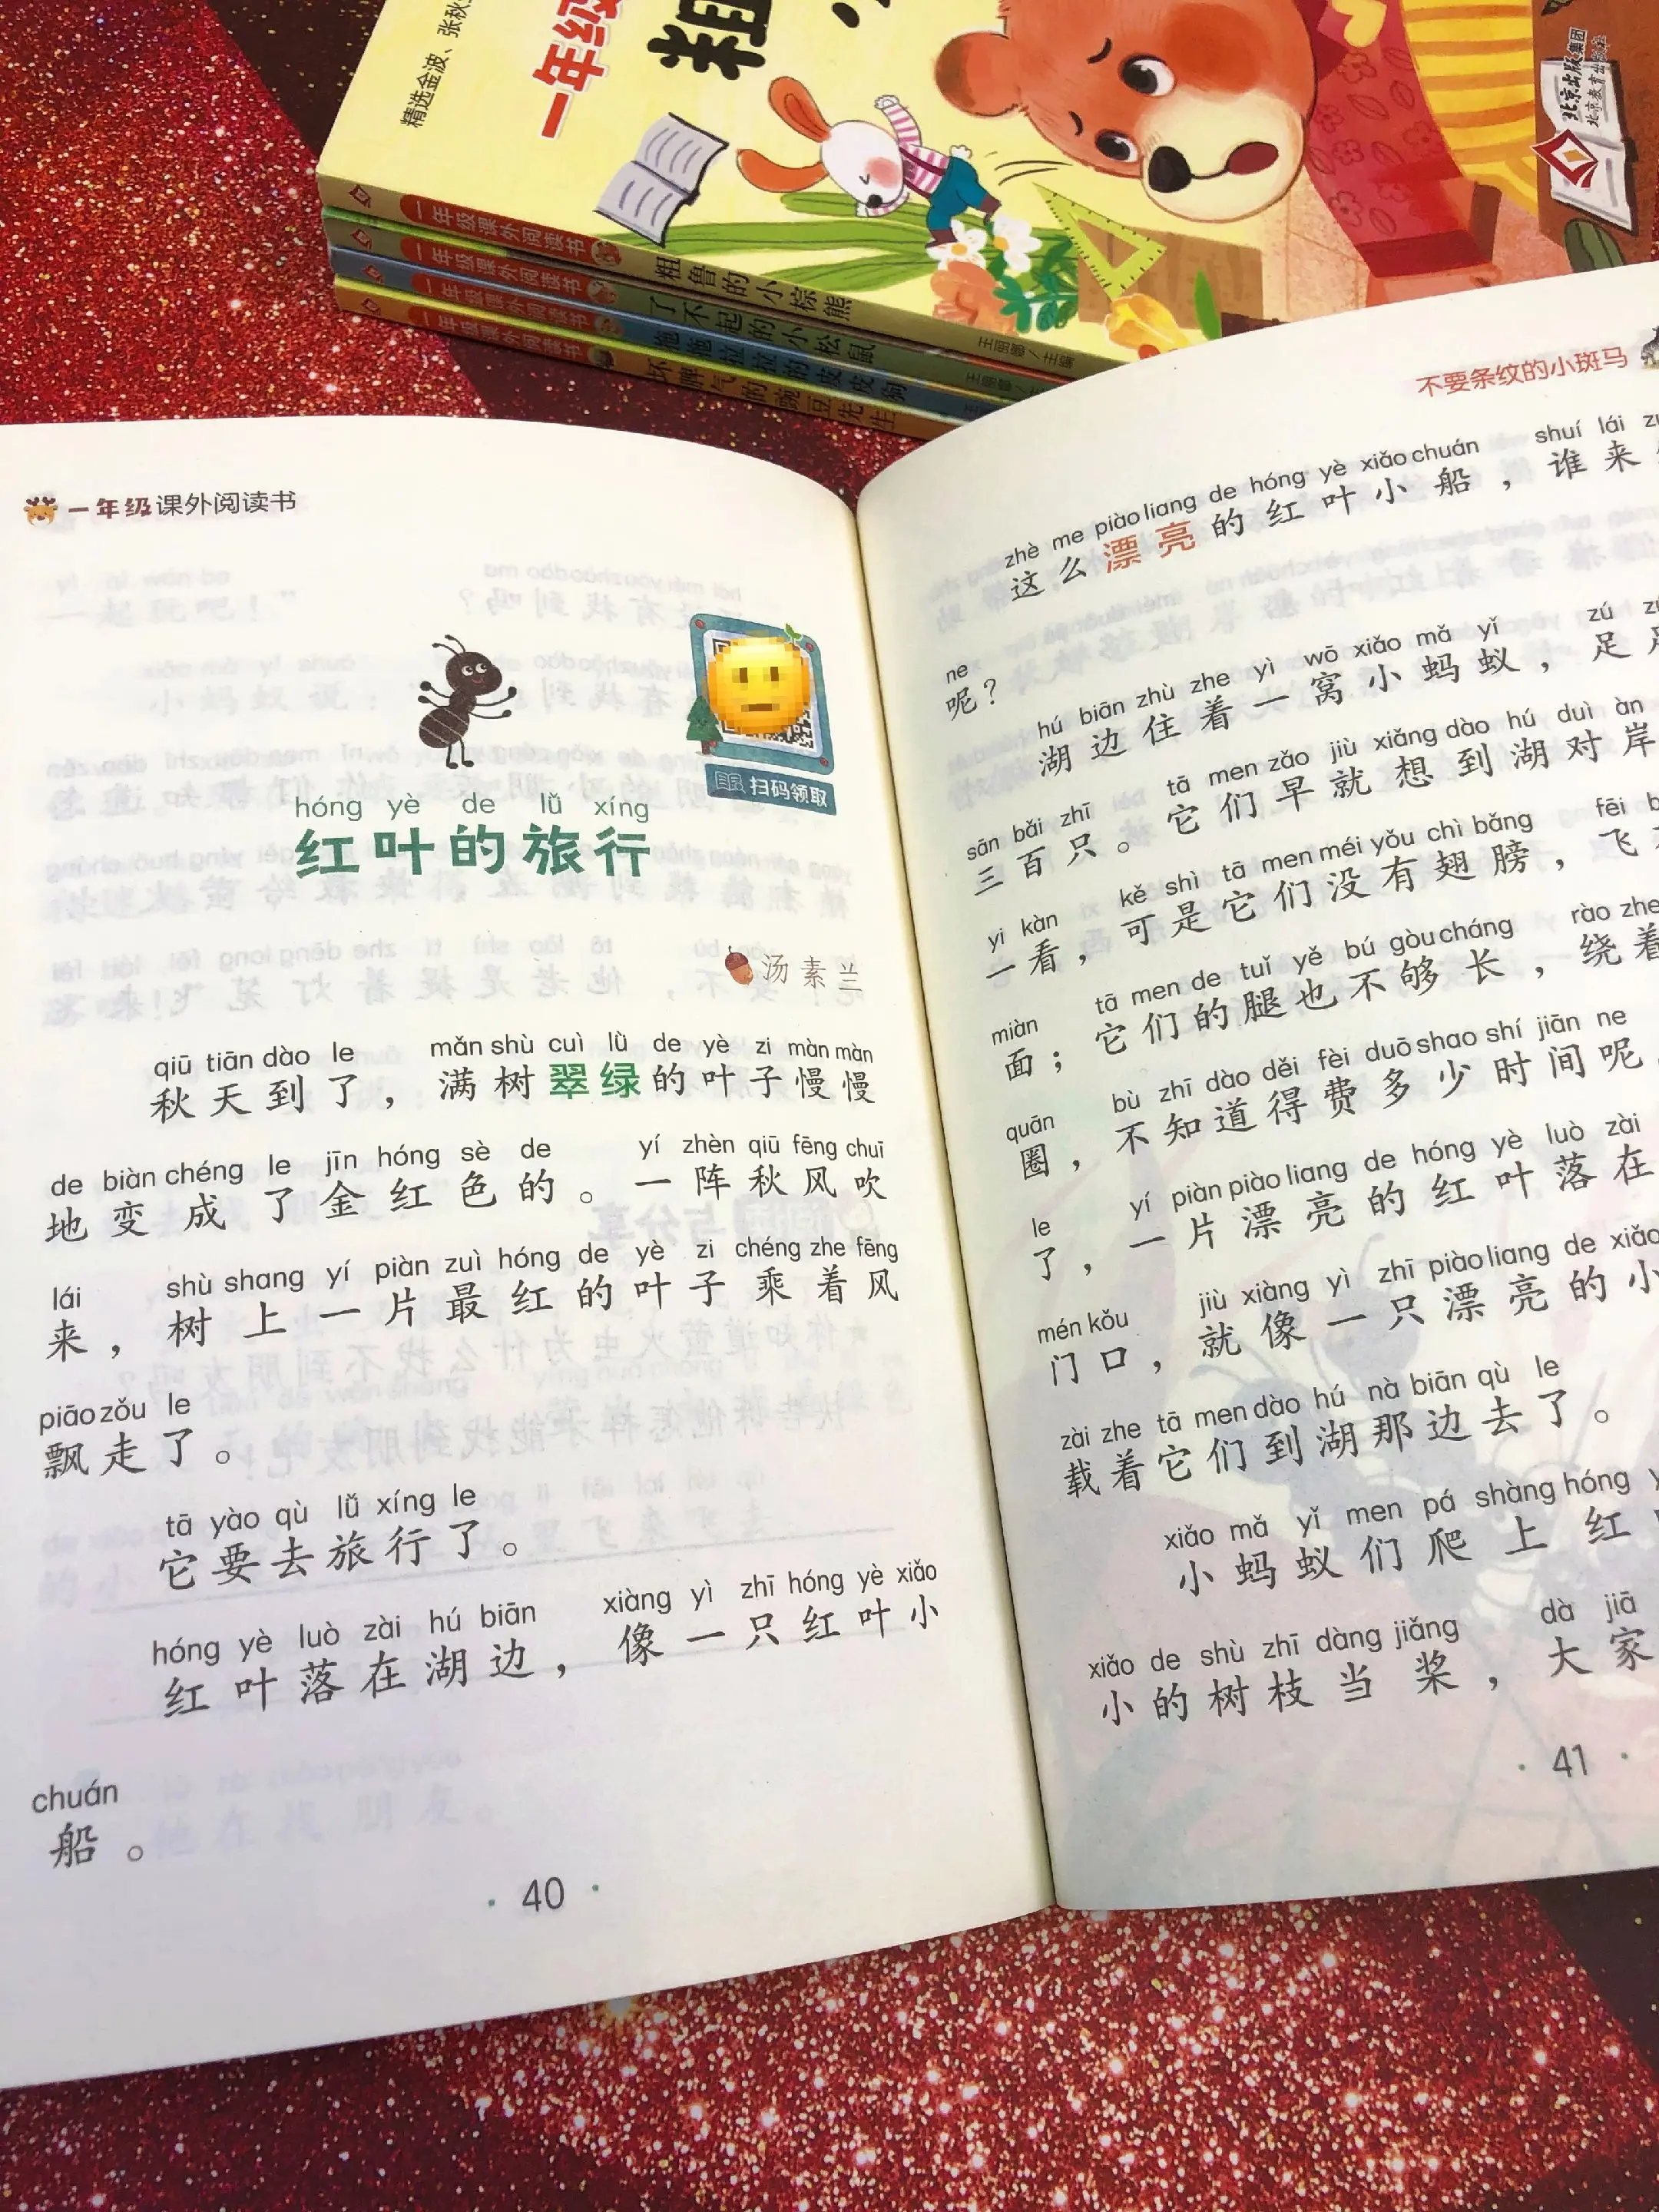 精选金波、张秋
一年级
粗
北京出版集团
北京教育出版社
一年级课外阅读书 粗鲁的小棕熊 王丽娜/主编
一年级课外阅读书 了不起的小松鼠 王丽娜
一年级课外阅读书 拖拖拉拉的皮皮狗
一年级课外阅读书 坏脾气的豌豆先生
一年级课外阅读书
扫码领取
hóng yè de lǚ xíng
红叶的旅行
汤素兰
qiū tiān dào le mǎn shù cuì lǜ de yè zi màn màn
秋天到了，满树翠绿的叶子慢慢
de biàn chéng le jīn hóng sè de yí zhèn qiū fēng chuī
地变成了金红色的。一阵秋风吹
lái shù shang yí piàn zuì hóng de yè zi chéng zhe fēng
来，树上一片最红的叶子乘着风
piāo zǒu le
飘走了。
tā yào qù lǚ xíng le
它要去旅行了。
hóng yè luò zài hú biān xiàng yì zhī hóng yè xiǎo
红叶落在湖边，像一只红叶小
chuán
船。
40
不要条纹的小斑马
zhè me piào liang de hóng yè xiǎo chuán shuí lái
这么漂亮的红叶小船，谁来
ne
呢？
hú biān zhù zhe yì wō xiǎo mǎ yǐ zú
湖边住着一窝小蚂蚁，足
sān bǎi zhī tā men zǎo jiù xiǎng dào hú duì àn
三百只。它们早就想到湖对岸
yi kàn kě shì tā men méi yǒu chì bǎng fēi
一看，可是它们没有翅膀，飞
miàn tā men de tuǐ yě bú gòu cháng rào zhe
面；它们的腿也不够长，绕着
quān bù zhī dào děi fèi duō shao shí jiān ne
圈，不知道得费多少时间呢
le yí piàn piào liang de hóng yè luò zài
了，一片漂亮的红叶落在
mén kǒu jiù xiàng yì zhī piào liang de xiǎo
门口，就像一只漂亮的小
zài zhe tā men dào hú nà biān qù le
载着它们到湖那边去了。
xiǎo mǎ yǐ men pá shàng hóng
小蚂蚁们爬上红
xiǎo de shù zhī dàng jiǎng dà jiā
小的树枝当桨，大家
41